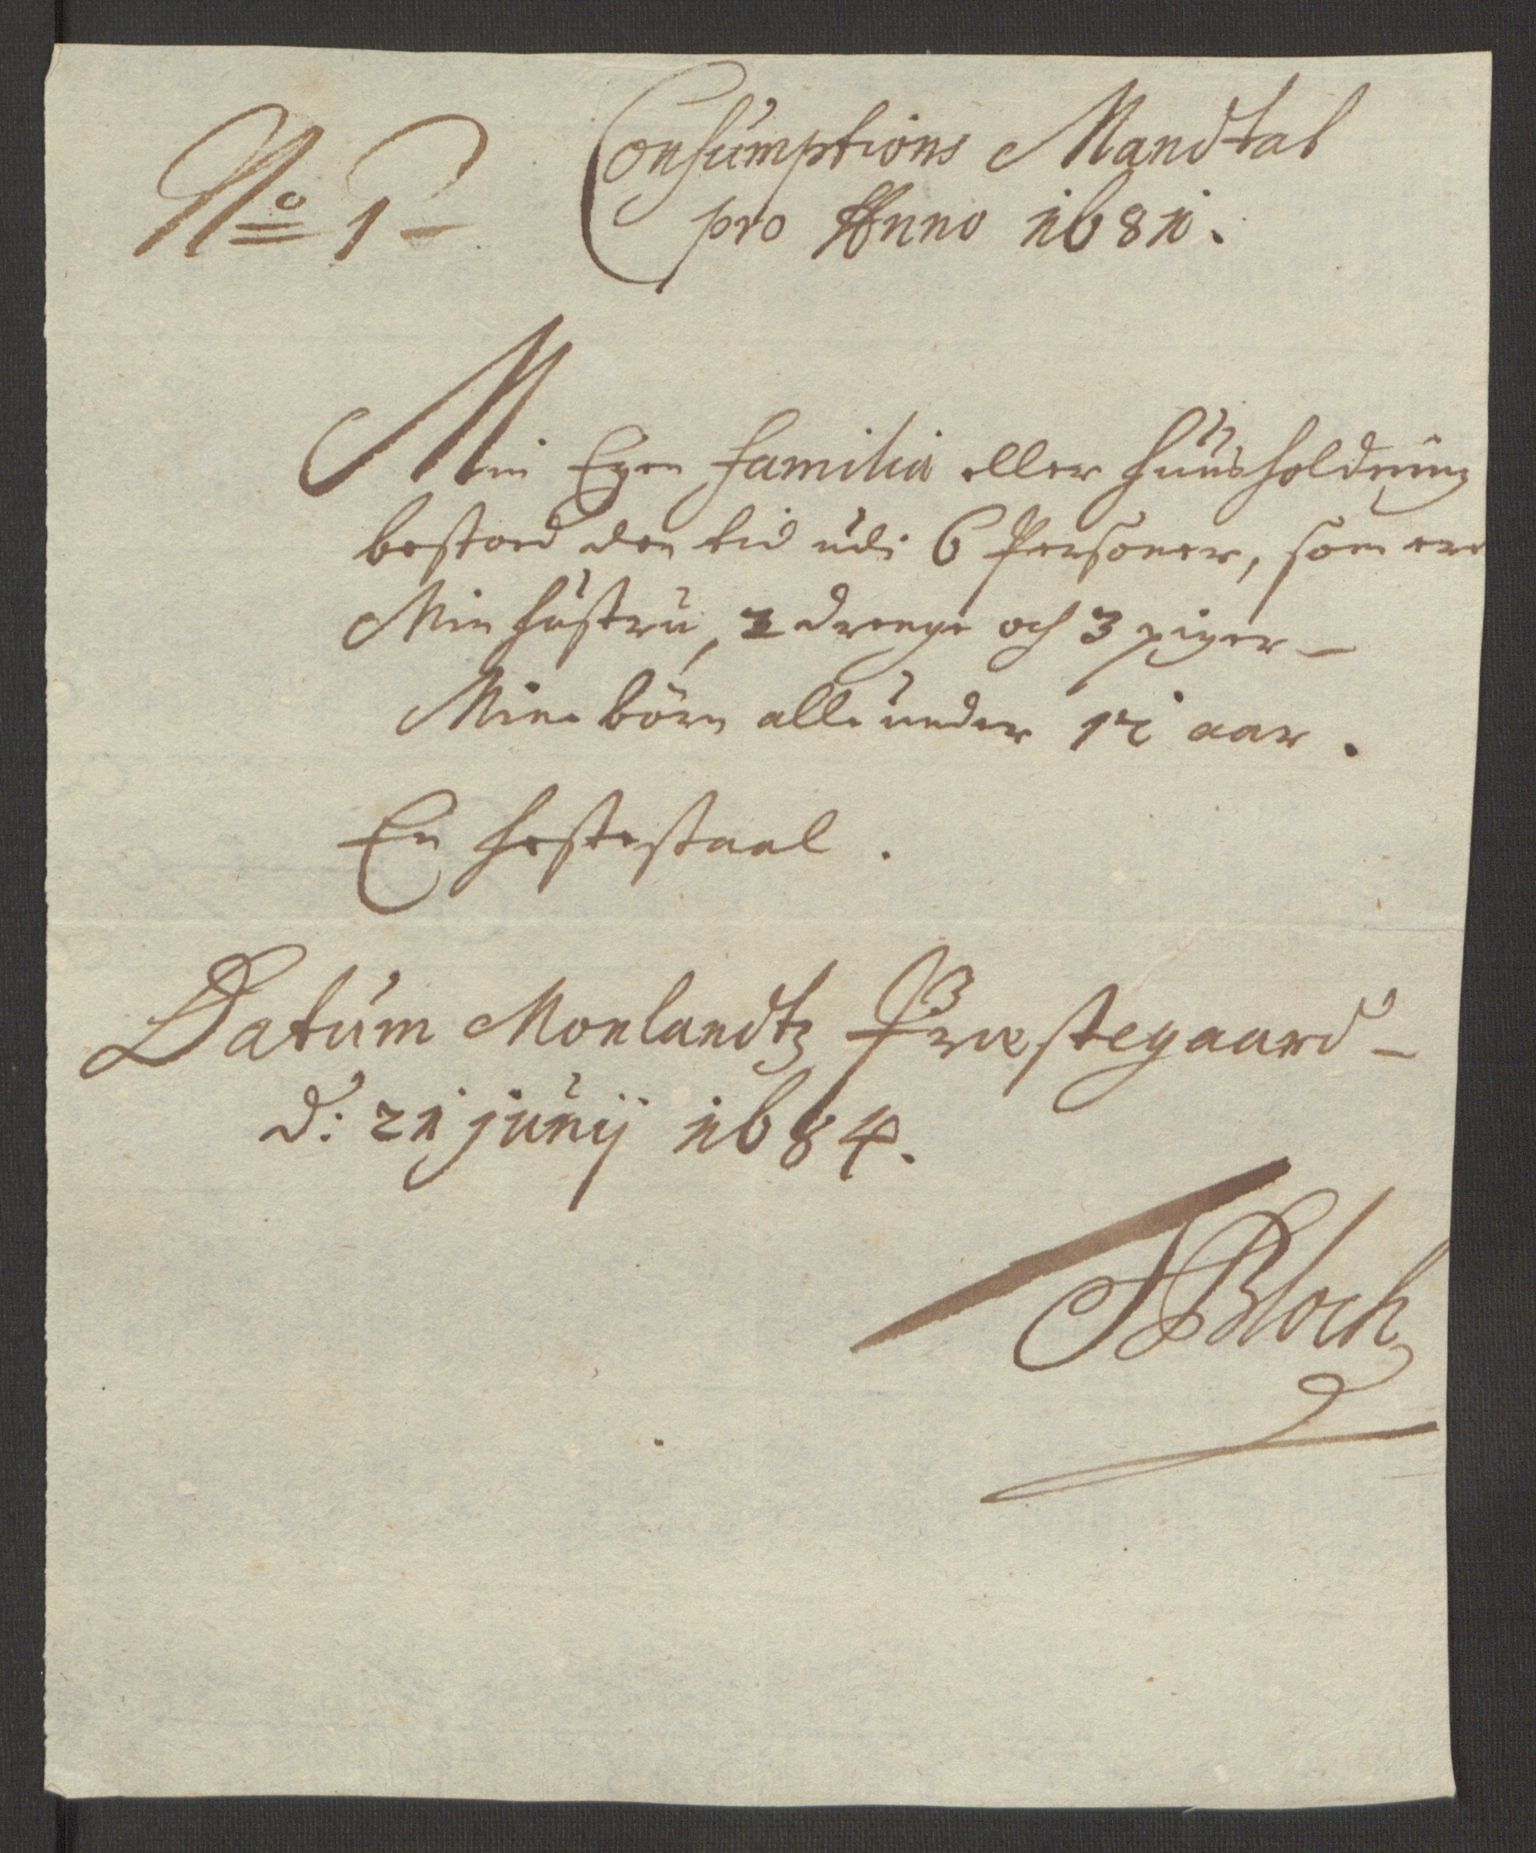 No 1 Consumptions Mandtal
pro Anno 1681.
Min Egen familia eller huusholdning
bestoed den tid udi 6 Personer, som ere
Min hustru, 2 drenge och 3 piger –
Mine börn alle under 12 aar.
En hestestaal.
Datum Monlandtz Præstegaard –
d: 21 junij 1684.
JBloch